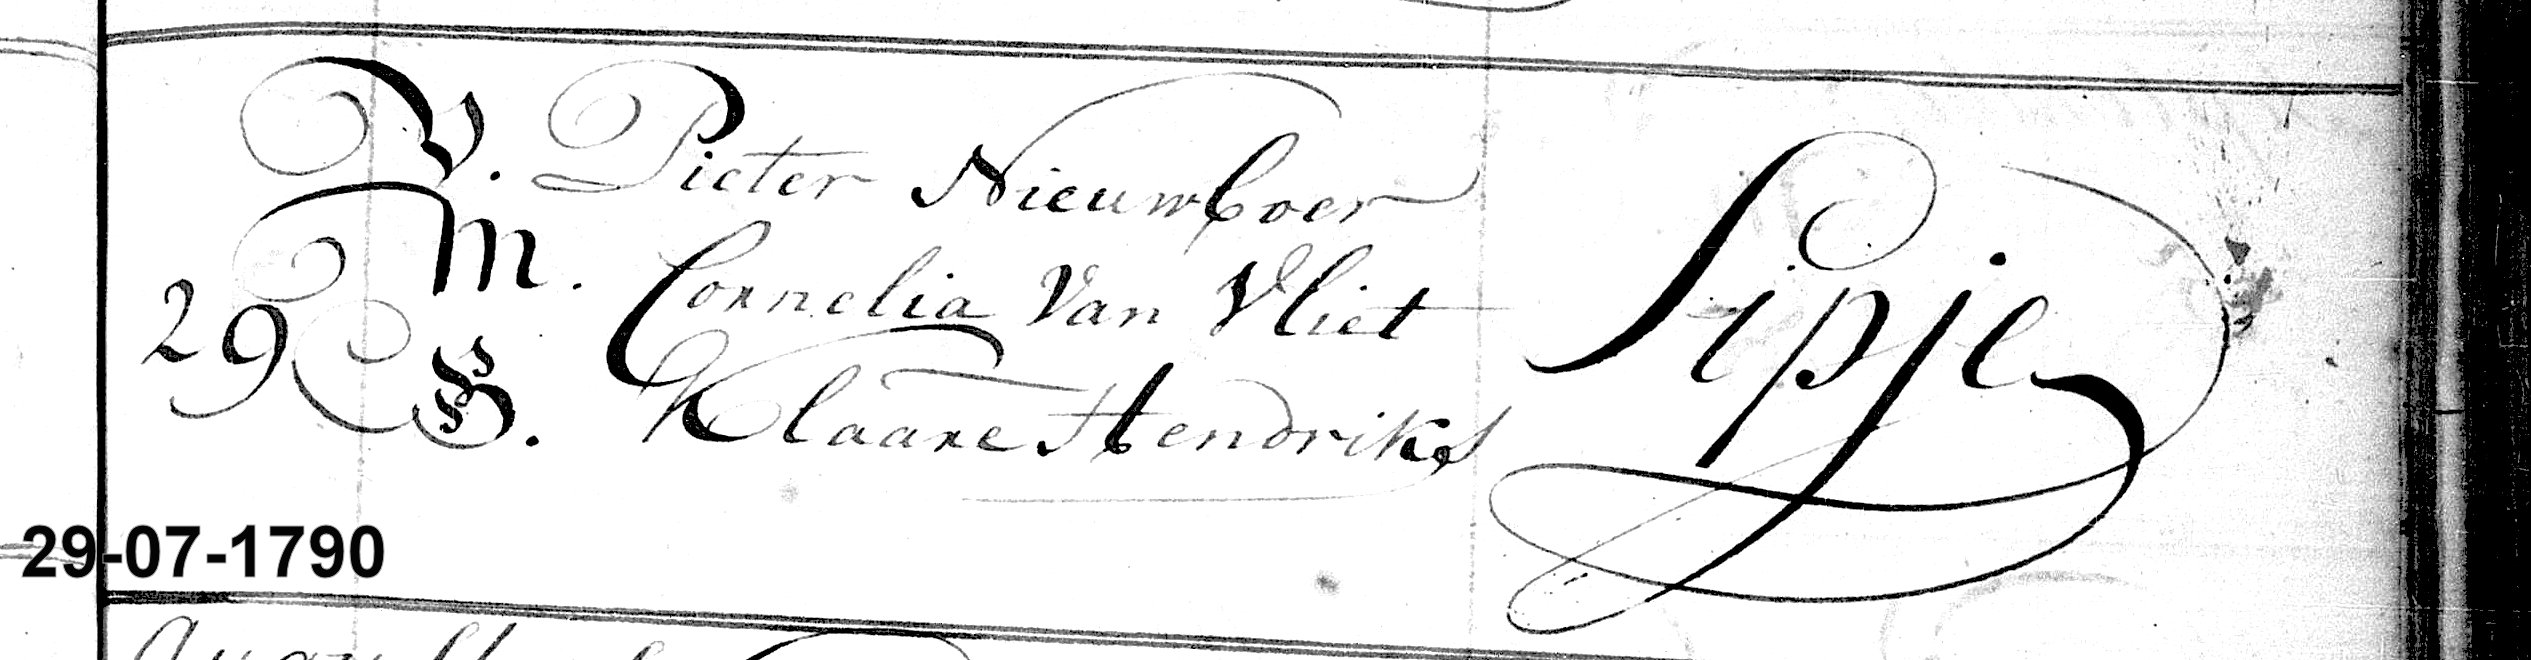 V. Pieter Nieuwboer
M. Cornelia Van Vliet
29 G. Klaare Hendriks
Sipje
29-07-1790